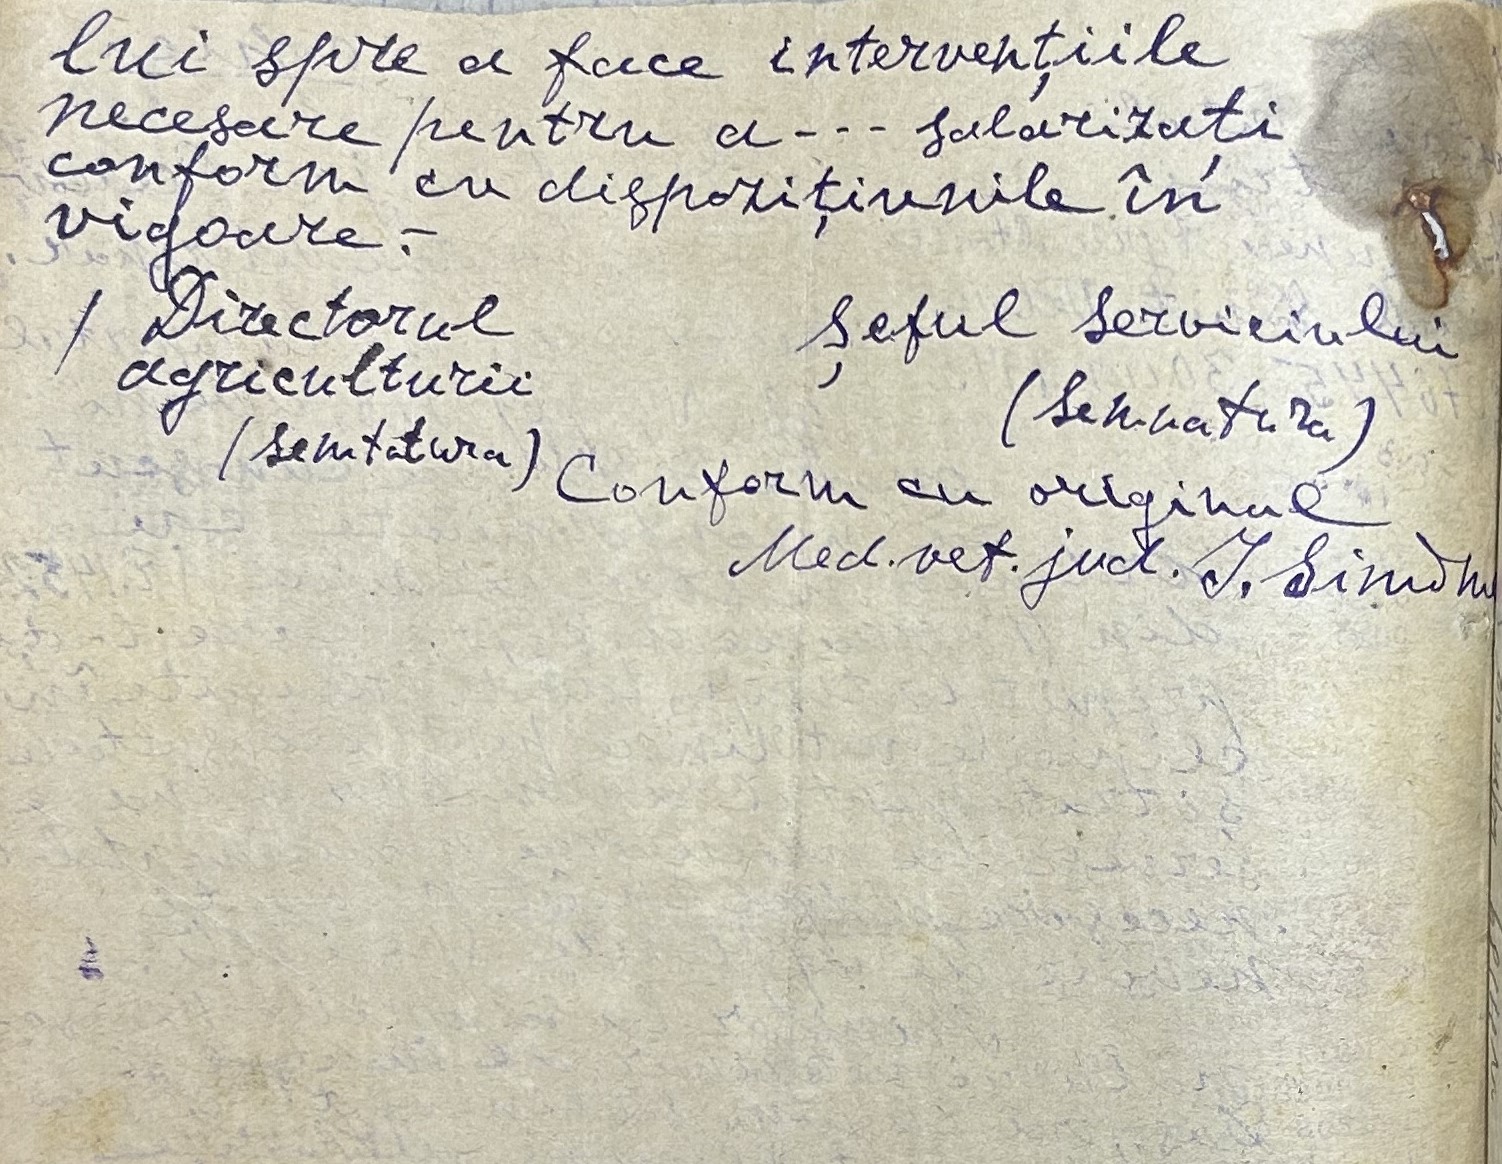 lui spre a face intervențiile
necesare pentru a --- salarizați
conform cu dispozițiunile în
vigoare.-
/ Directorul
agriculturii
(semtatura)
Șeful Serviciului
(Semnatura)
Conform cu original
Med. vet. jud. I.